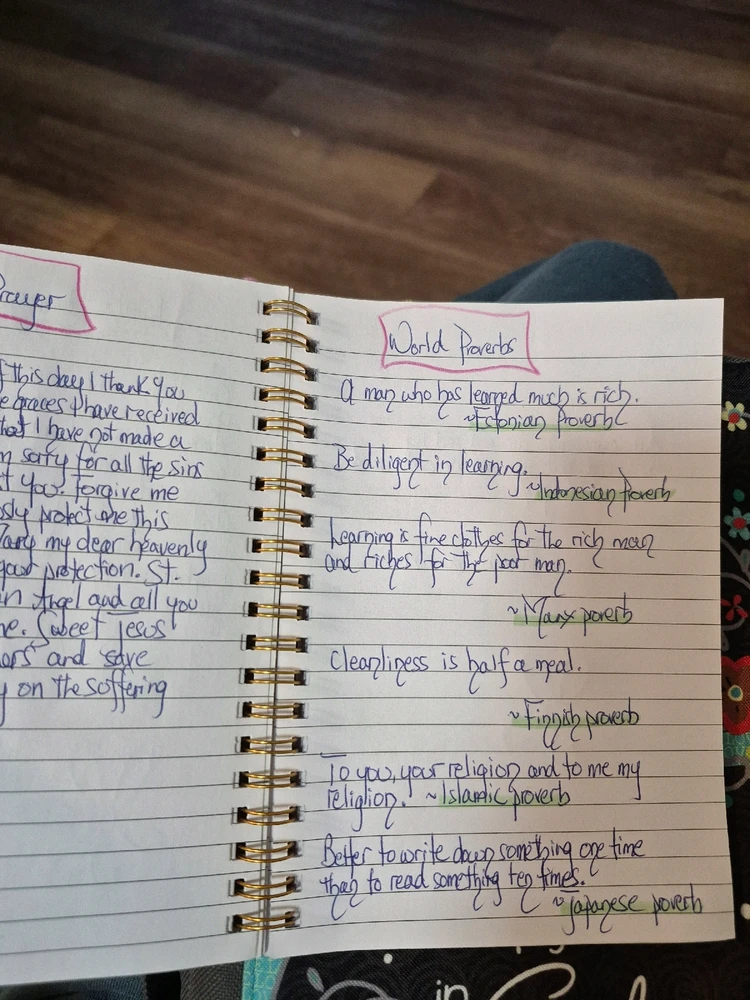 Prayer
f this day I thank you
e graces I have received
hat I have not made a
m sorry for all the sins
t you. Forgive me
sly protect me this
Mary my dear heavenly
your protection. St.
n Angel and all you
me. Sweet Jesus
ers and save
y on the soffering
World Proverbs
A man who has learned much is rich.
~Estonian Proverb
Be diligent in learning.
~Indonesian Proverb
Learning is fine clothes for the rich man
and riches for the poor man.
~ Manx poverb
Cleanliness is half a meal.
~Finnish proverb
To you, your religion and to me my
religlion. ~Islamic proverb
Better to write down something one time
than to read something ten times.
~Japanese poverb
in